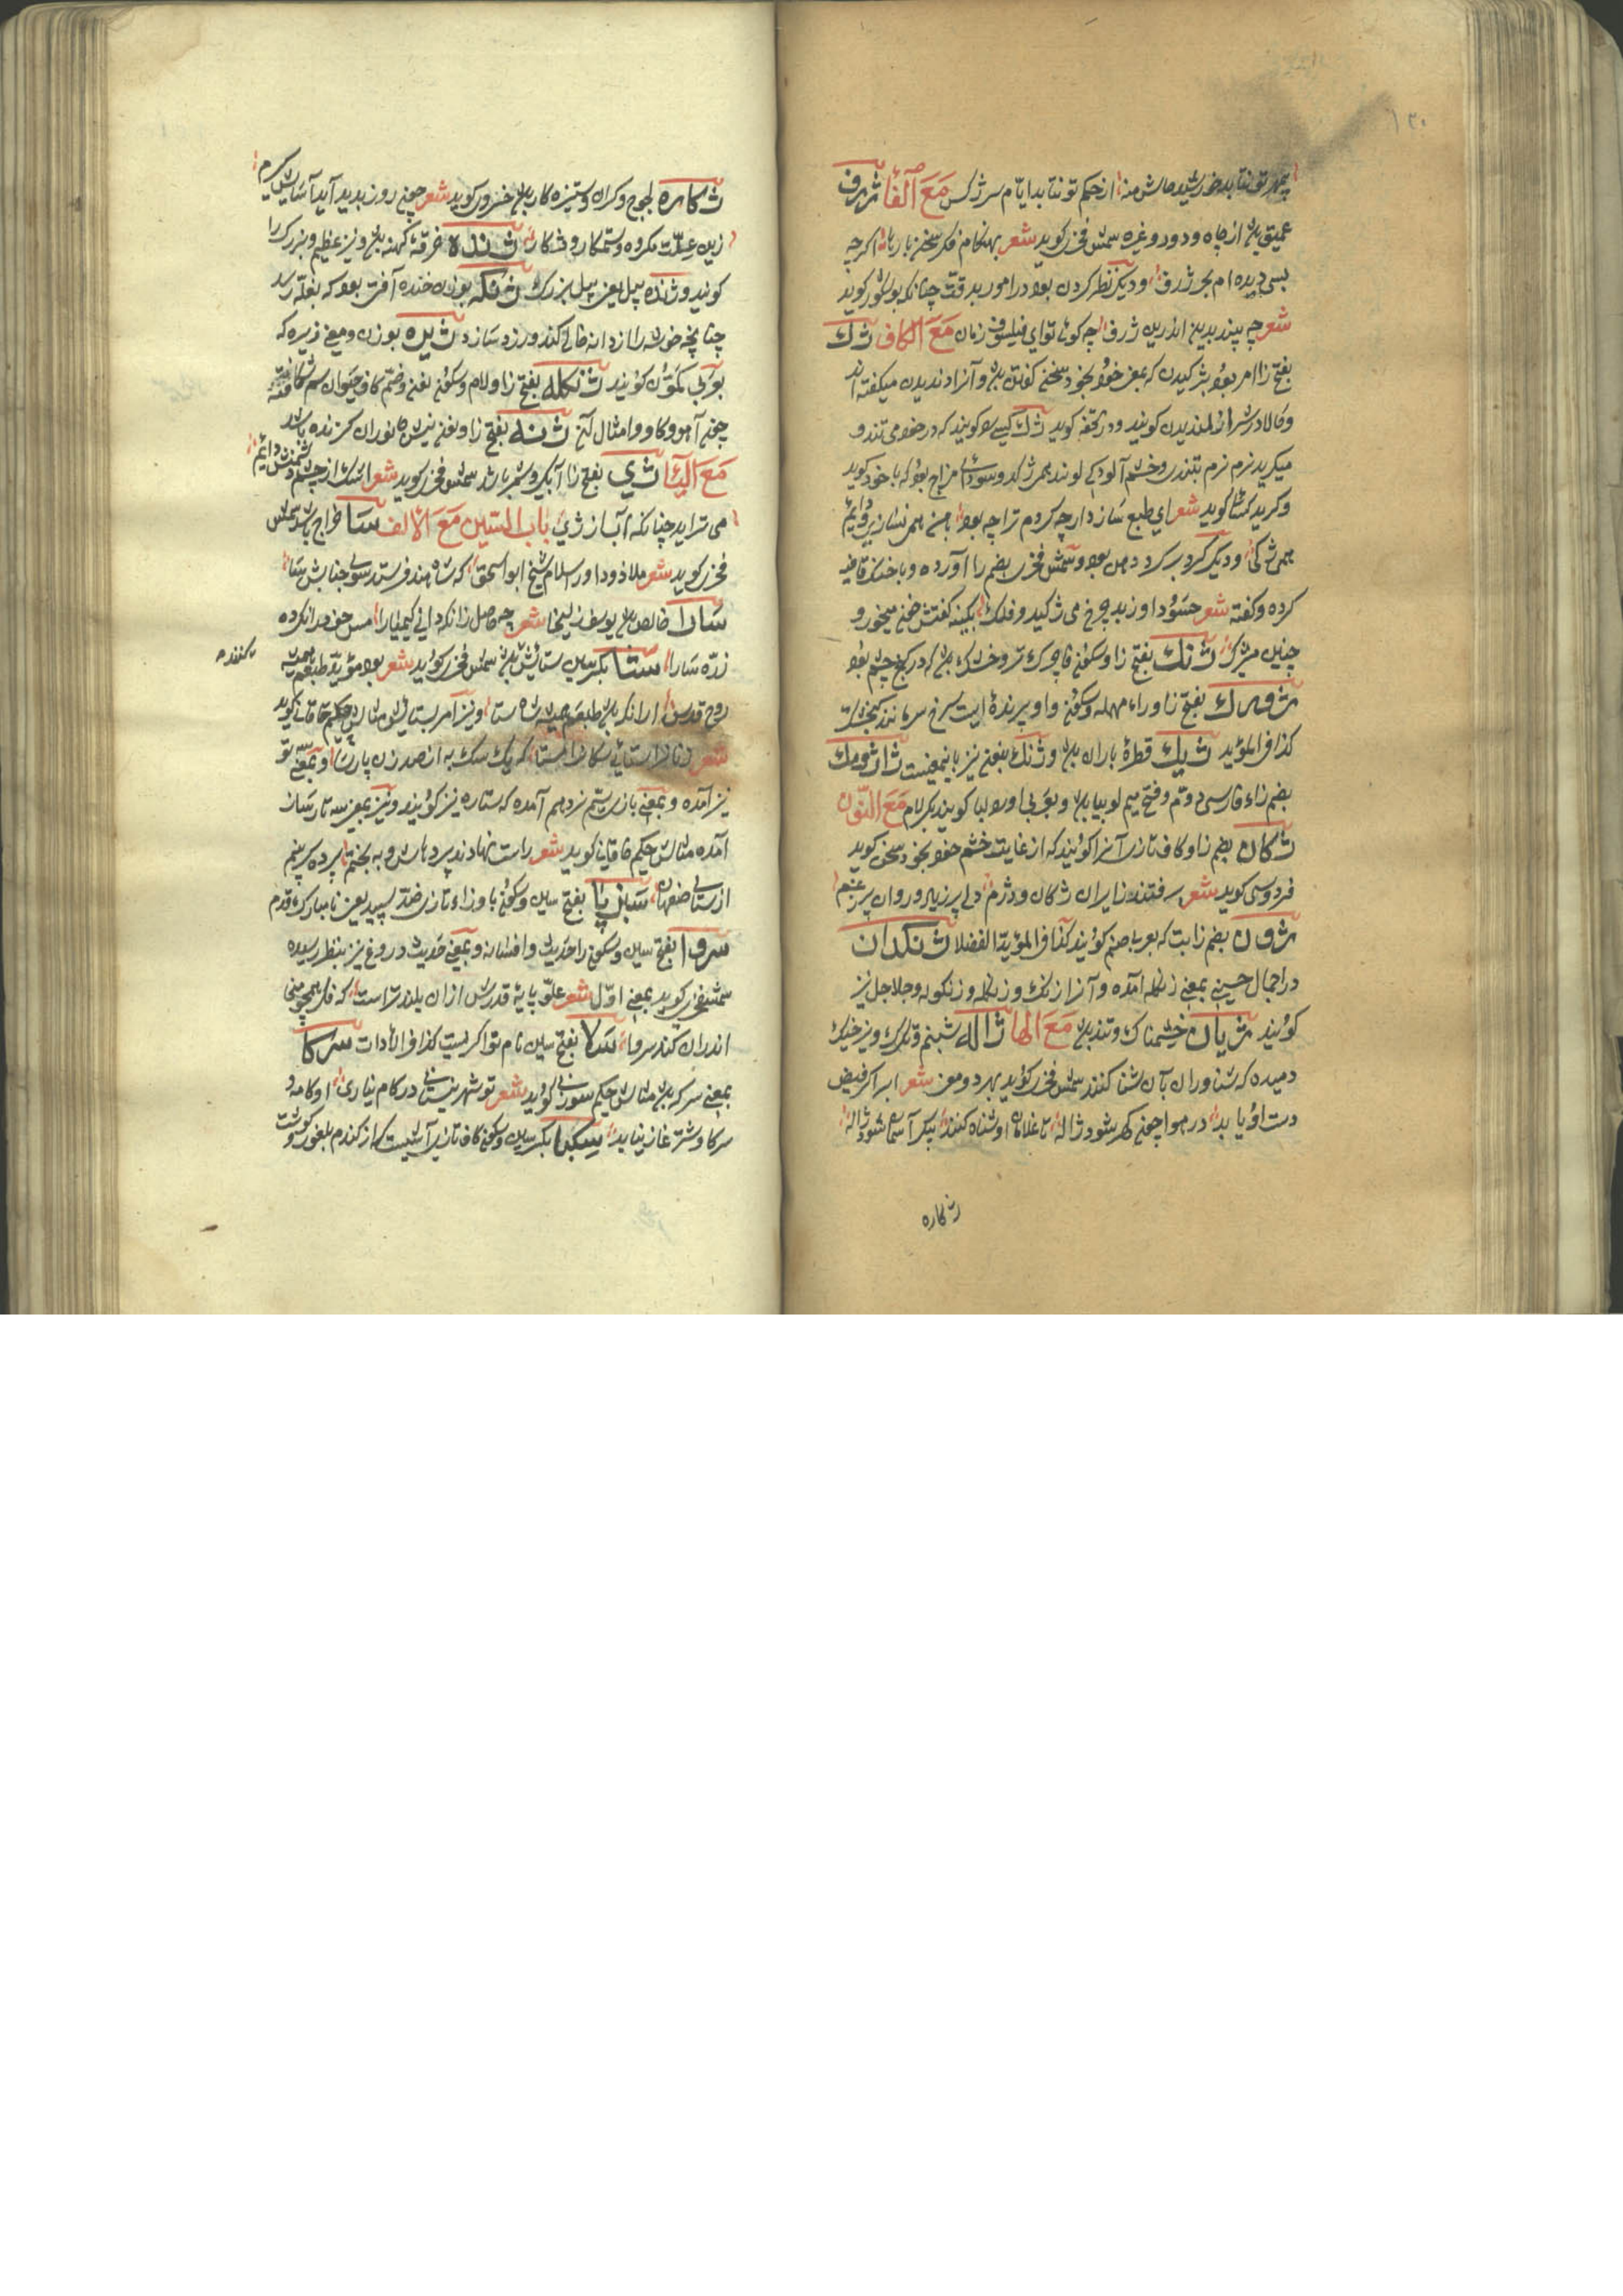 ۱۳۰
بمهر تو نتابد خورشید ماش منه از حکم تو نتابد ایام سرژکس مع الفا ژرف
عمیق بود از چاه و دود و غیره شمس فخری کوید شعر بهنکام فکر سخن بارها اکرچه
بسی دیده ام بحر ژرف و دیکر نظر کردن بود در امور بدقت چنانکه بوشکور کوید
شعر چه بینید بدین اندرین ژرف چه کوئی تو ای فیلسوف زمان مع الکاف ژک
بفتح زا امر بود بژکیدن که یعنی خود بخود سخنی کفتن بود و آنرا دندیدن میکفته اند
و حالا در شیراز لندیدن کویند و در تحفه کوید ژک کسی را کویند که در خود می تند و
میکرید نرم نرم بتندی و خشم آلودکی
و کرید کسائی کوید شعر ای طبع سازدار چه کردم ترا چه بود با من همی نسازی و دایم
همی ژکی و دیکر کرد بر کرد دهن بود و شمس فخری بضم زا آورده و با خنک قافیه
کرده و کفته شعر حسود او ز بد چرخ می ژکید و فلک بکینه کفتش خون میخور و
چنین میژک ژنک بفتح زا و سکون نون چرک تر و خشک بود که در کنج چشم بود
ژورک بفتح زا و راء مهمله و سکون واو پرنده ایست سرخ سر مانند کنجشک
کذا فی المؤید ژیک قطرهٔ باران بود و ژنک بنون نیز باینمعنیست ژاژومک
بضم زاء فارسی دوم و فتح میم لوبیا بود و بعربی اورا لوبیا کویند بکر لام مع النون
ژکان بضم زا و کاف تازی آنرا کویند که از غایت خشم خود بخود سخن کوید
فردوسی کوید شعر برفتند از ایران ژکان و دژم دلی پر ز باد و روان پر ز غم
ژون بضم زا بت که بعربی صنم کویند کذا فی المؤید الفضلا ژنکدان
در اجمال حسینی بمعنی زنکله آمده و آنرا زنک و زنکله و زنکوله و جلاجل نیز
کویند ژیان خشمناک و تند بود مع الها ژاله شبنم و تکرک و نیز خیک
دمیده که شناوران بآن شنا کنند شمس فخری کوید بهر دو معنی شعر ابر اکر فیض
دست او یابد در هوا چون کهر شود ژاله تا غلامان او شناه کنند پیکر آسمان شود ژاله
ژکاره
ژکاره لجوج و کران و ستیزه کار بود خسروی کوید شعر چون روز بدید آید آسایش کیرم
زین علت مکروه و ستمکار و ژکاره ژنده خرقهٔ کهنه بود و نیز عظیم و بزرک را
کویند و ژنده پیل یعنی پیل بزرک ژنکه بوزن خنده آفتی بود که بغله رسد
چنانچه خوشه را از دانه خالی کند و زرد سازد ژیره بوزن و معنی زیره که
بعربی کمون کویند ژنکله بفتح زا و لام و سکون نون و ضم کاف حیوان سم شکافته
چون آهو و کاو و امثال آن ژنه بفتح زا و نون نیش جانوران کزنده باشد
مع الیا ژی بفتح زا آبکیر و شمر باشد شمس فخری کوید شعر اشک از چشم دشمنش دایم
می تراید چنانکه آب از ژی باب السین مع الالف سا خراج باشد شمس
فخری کوید شعر ملاذ و داور اسلام شیخ ابواسحق که شاه هند فرستد سوی جنابش سا
سارا خالص بود یوسف زلیخا شعر چه حاصل زانکه دانی کیمیا را مس خود را نکرده
زر سارا ستا بکسر سین ستایش بود شمس فخری کوید شعر بود مؤید طبعم همیشه
روح قدس از انکه بود طبعم همیشه شاه ستا و نیز امر بستایش مثالش حکیم خاقانی کوید
شعر که یک سک به از صد زن پارسا و بمعنی سه تو
نیز آمده و بمعنی بازی سیم نرد هم آمده که ستاره نیز کویند و نیز بمعنی سه تار ساز
آمده مثالش حکیم خاقانی کوید شعر راست نهادند پردهاش و به بختم پرده کرد بینم
از ستای صفاهان سبزپا بفتح سین و سکون با و زاء تازی ضد سپید یعنی نامبارک قدم
سروا بفتح سین و سکون را حدیث و افسانه و بمعنی حدیث دروغ نیز بنظر رسیده
شمس فخری کوید بمعنی اول شعر علو پایهٔ قدرش ازان بلندتراست که فکر همچو منی
اندران کند سروا سلا بفتح سین نام نواکریست کذا فی الادات سرکا
بمعنی سرکه بود مثالش حکیم سوزنی کوید شعر تو شهرینستانی در کام نیاری او کامه و
سرکا و شتر غاز نیابد سکبا بکسر سین و سکون کاف تازی آشیست که از کندم بلغور و کوشت